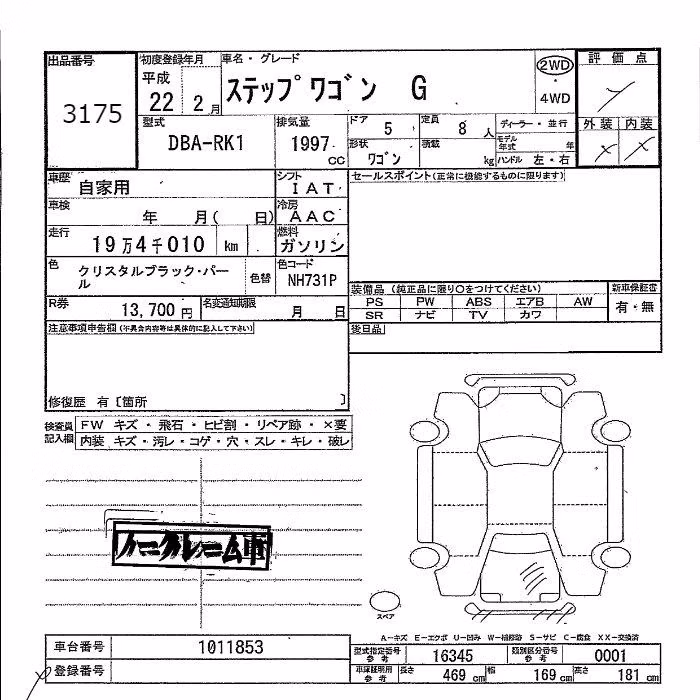 出品番号
3175
初度登録年月
平成
22 2 月
車名・グレード
ステップワゴン G
2WD
・
4WD
評価点
外装 内装
型式
DBA-RK1
排気量
1997
cc
ドア
5
定員
8 人
形状
ワゴン
積載
kg
ディーラー・並行
モデル年式 年
ハンドル 左・右
車歴
自家用
シフト
IAT
車検
年 月( 日)
冷房
AAC
走行
19万4千010 km
燃料
ガソリン
色
クリスタルブラック・パール
色替
色コード
NH731P
R券
13,700 円
名変通知期限
月 日
セールスポイント(正常に機能するものに限ります)
装備品 (純正品に限り○をつけてください)
PS PW ABS エアB AW
SR ナビ TV カワ
新車保証書
有・無
後日品
注意事項申告欄(不具合内容等は具体的に記入して下さい)
修復歴 有〔箇所 〕
検査員記入欄
FW キズ・飛石・ヒビ割・リペア跡・×要
内装 キズ・汚レ・コゲ・穴・スレ・キレ・破レ
ノークレーム車
スペア
A-キズ E-エクボ U-凹み W-補修跡 S-サビ C-腐食 XX-交換済
車台番号
1011853
登録番号
型式指定番号
参考
16345
類別区分番号
参考
0001
車庫証明用
参考
長さ
469 cm
幅
169 cm
高さ
181 cm